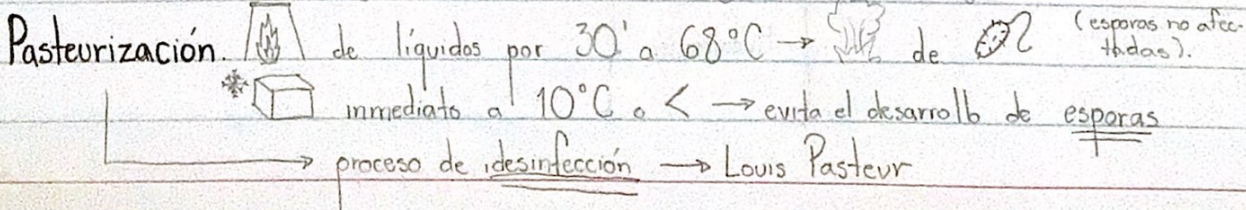 Pasteurización. de líquidos por 30' a 68°C → de (esporas no afec-
tadas).
inmediato a 10°C o < → evita el desarrollo de esporas
→ proceso de desinfección → Louis Pasteur